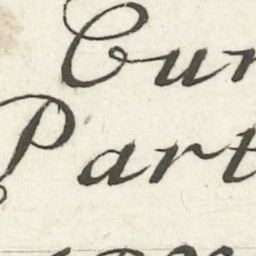 Cur
Part